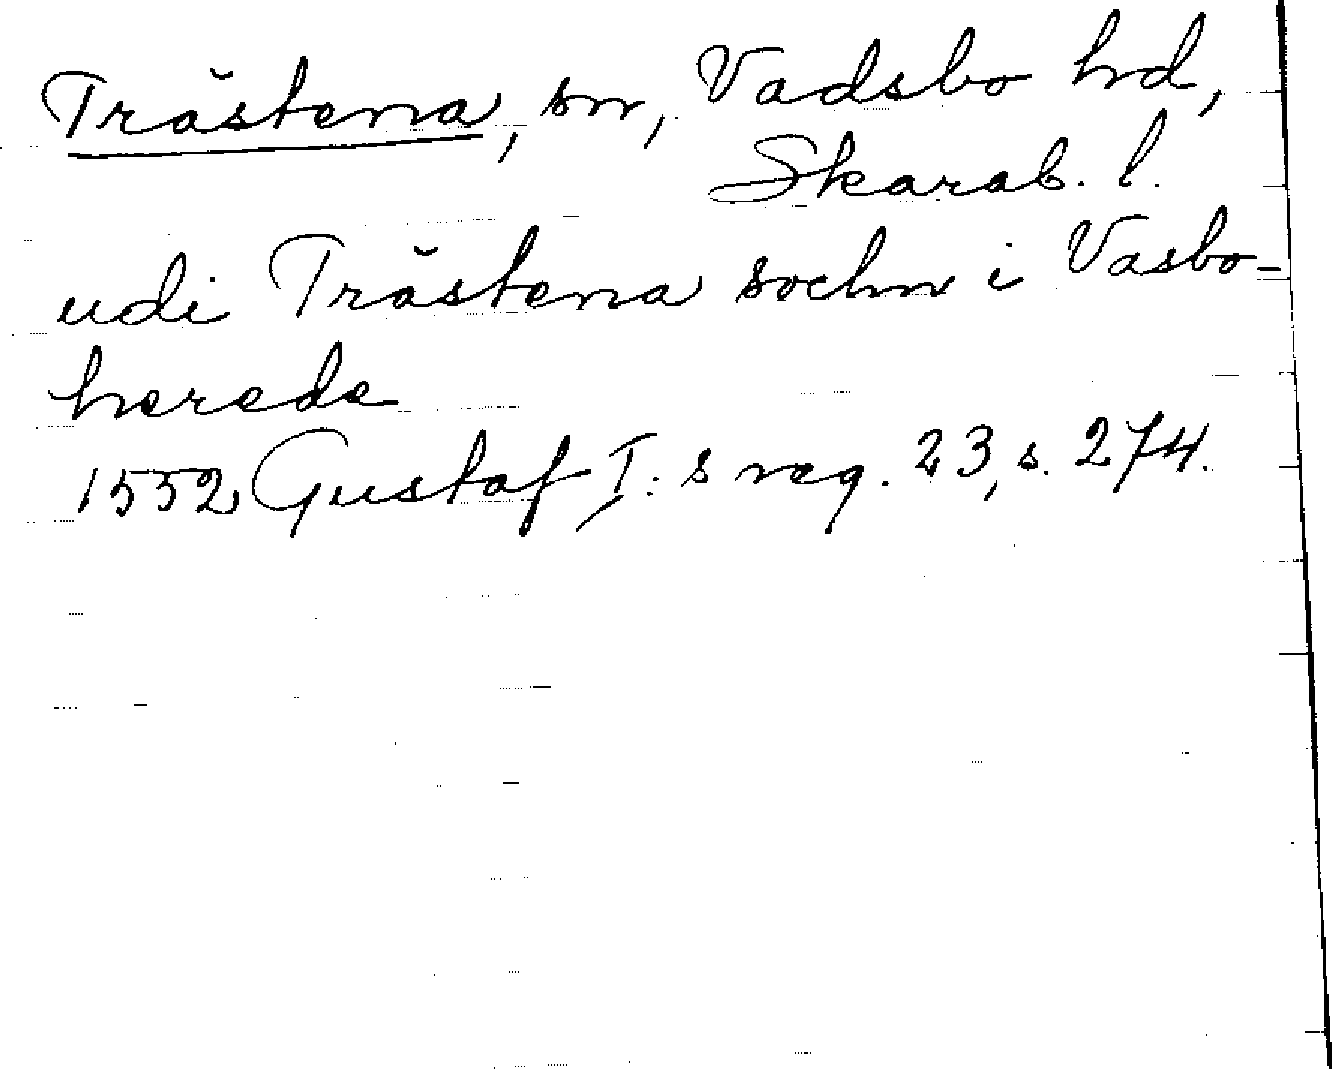 Trästena, sn, Vadsbo hd,
Skarab. l.
udi Trästena sochn i Vasbo-
herede
1552 Gustaf I:s reg. 23, s. 274.